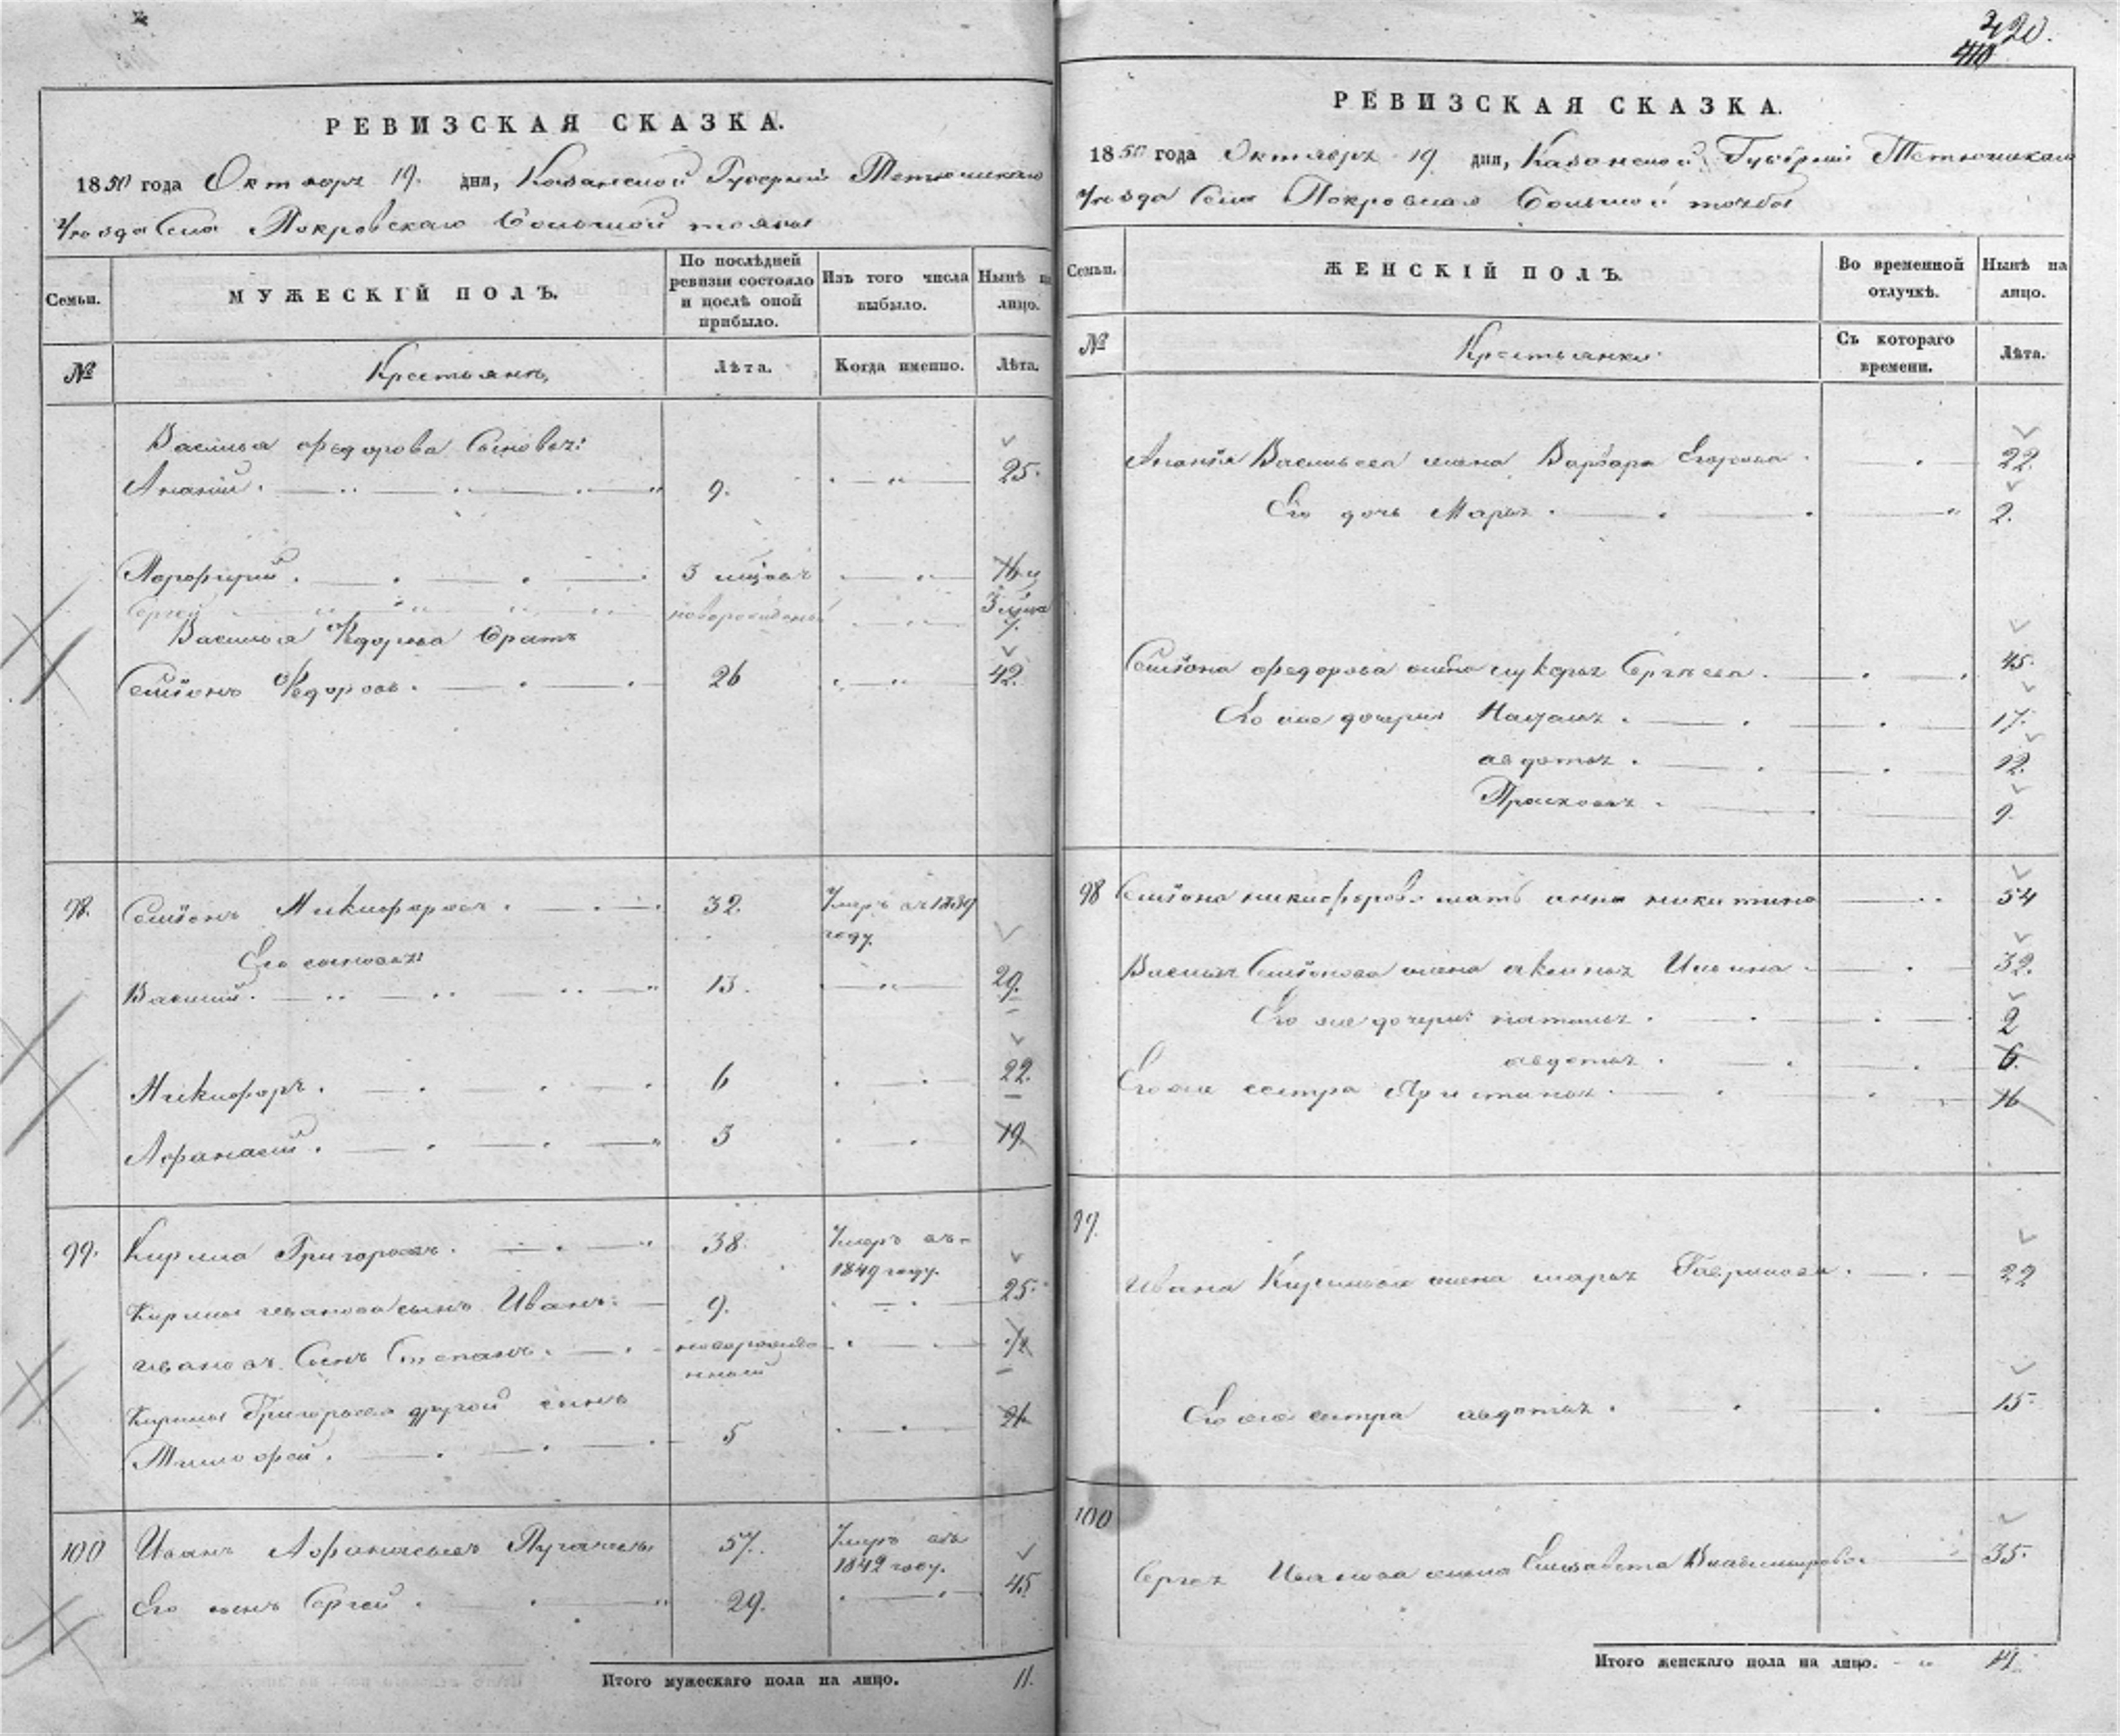 420.
410
РЕВИЗСКАЯ СКАЗКА.
1850 года Октября 19. дня, Казанской Губернии Тетюшскаго
уѣзда Села Покровскаго Большой тоябы
Семьи.
МУЖЕСКІЙ ПОЛЪ.
По послѣдней ревизіи состояло и послѣ оной прибыло.
Изъ того числа выбыло.
Нынѣ на лицо.
№
Крестьянъ,
Лѣта.
Когда именно.
Лѣта.
Василья Федорова Сыновья:
Ананій. 9. 25.
Порфирій. 3 мѣсяч 16
Сергей новорожден 3
Василья Федорова братъ
Семіонъ Федоровъ. 26 42.
98. Семіонъ Никифоровъ. 32. Умеръ въ 1839
году.
Его сыновья:
Василій. 13. 29.
Никифоръ. 6 22.
Афанасій. 3 19.
99. Кирила Григорьевъ. 38. Умеръ въ
1849 году.
Кирилы сынъ Иванъ. 9. 25.
Иванова Сынъ Степанъ. новорожде
нный
Кирилы Григорьева другой сынъ
Тимофей. 5 21
100 Иванъ Афанасьевъ 57. Умеръ въ
1842 году.
Его сынъ Сергей. 29. 45
Итого мужескаго пола на лицо. 11.
РЕВИЗСКАЯ СКАЗКА.
1850 года Октября 19 дня, Казанской Губерніи Тетюшскаго
уѣзда Села Покровскаго Большой тоябы
Семьи.
ЖЕНСКІЙ ПОЛЪ.
Во временной отлучкѣ.
Нынѣ на лицо.
№
Крестьянки
Съ котораго времени.
Лѣта.
Ананія Васильева жена Варвара Егорова. 22.
Его дочь Марья. 2.
Семіона Федорова жена лукерья Сергѣева. 45.
Его же дочери Наталья. 17.
авдотья. 12.
Прасковья. 9.
98 Семіона никифорова мать анна никитина 54
Василья Семіонова жена акилина Ильина. 32.
Его же дочери: наталья. 2
авдотья. 6.
Его же сестра Христинья. 16
99.
Ивана Кирильева жена марья Гаврилова. 22
Его же сестра авдотья. 15.
100
Сергея Иванова жена Елизавета Владимирова 35.
Итого женскаго пола на лицо. 14.